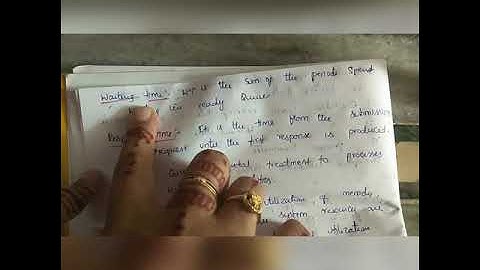 Waiting time:- It is the sum of the periods spend
in ready Queue
time:- It is the time from the submission
request until the first response is produced.
treatment to processes
utilization of memory,
system resources are
utilization